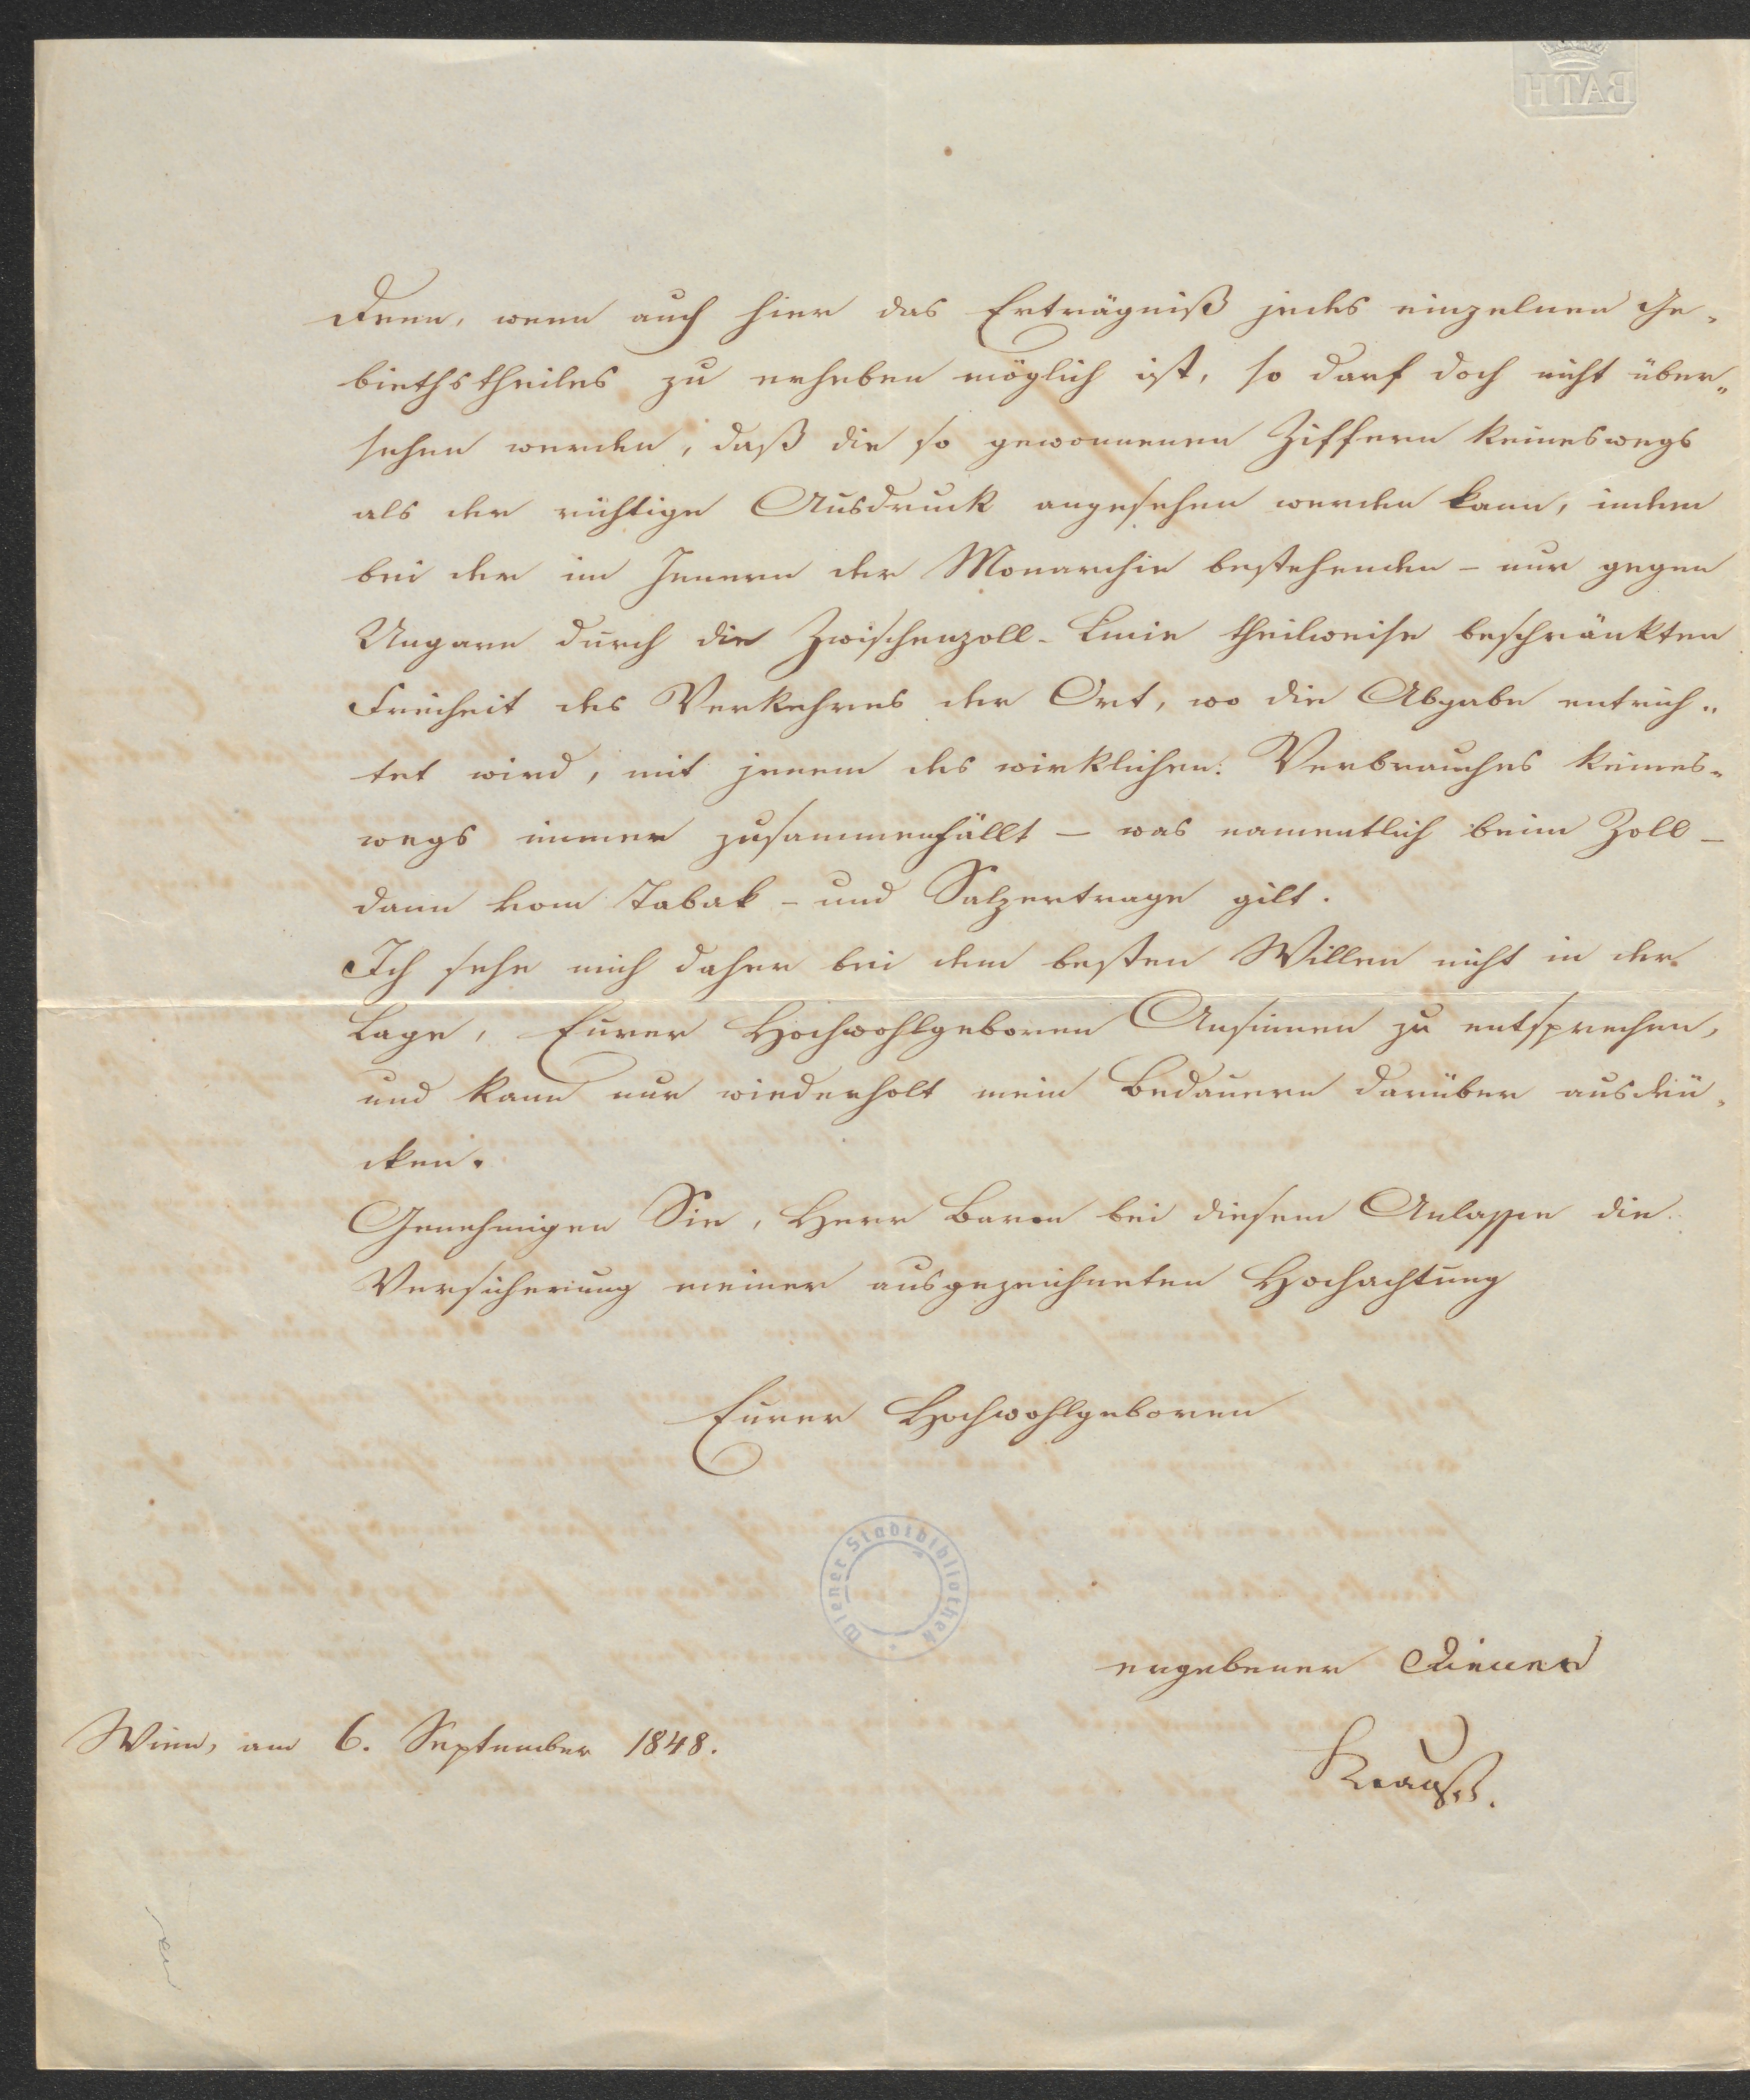 BATH
Denn, wenn auch hier das Erträgniß jedes einzelnen Ge„
biethstheiles zu erheben möglich ist, so darf doch nicht über„
sehen werden, daß die so gewonnenen Ziffern keineswegs
als der richtige Ausdruck angesehen werden kann, indem
bei der im Innern der Monarchie bestehenden – nur gegen
Ungarn durch die Zwischenzoll-Linie theilweise beschränkten
Freiheit des Verkehres der Ort, wo die Abgabe entrich„
tet wird, mit jenem des wirklichen Verbrauches keines„
wegs immer zusammenfällt – was namentlich beim Zoll –
dann vom Tabak- und Salzertrage gilt.
Ich sehe mich daher bei dem besten Willen nicht in der
Lage, Eurer Hochwohlgeboren Ansinnen zu entsprechen,
und kann nur wiederholt mein Bedauern darüber ausdrü„
cken.
Genehmigen Sie, Herr Baron bei diesem Anlasse die
Versicherung meiner ausgezeichneten Hochachtung
Eurer Hochwohlgeboren
Wiener Stadtbibliothek
ergebener Diener
Wien, am 6. September 1848.
Krauß.